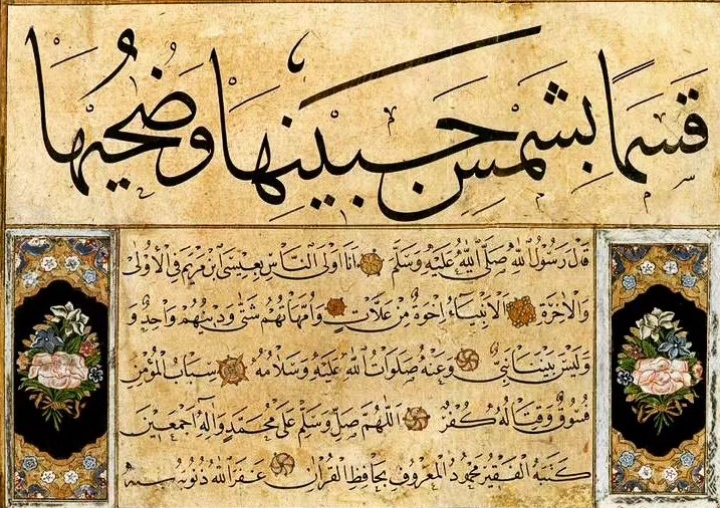 قَسَمًا بِشَمْسِ جَبِينِهَا وَضُحٰيهَا
قَالَ رَسُولُ اللهِ صَلَّى اللهُ عَلَيْهِ وَسَلَّمَ اَنَا اَوْلَى النَّاسِ بِعِيسَى ابْنِ مَرْيَمَ فِي الْاُولٰى
وَالْاٰخِرَةِ الْاَنْبِيَاءُ اِخْوَةٌ مِنْ عَلَّاتٍ وَاُمَّهَاتُهُمْ شَتّٰى وَدِينُهُمْ وَاحِدٌ وَ
وَلَيْسَ بَيْنَنَا نَبِيٌّ وَعَنْهُ صَلَوَاتُ اللهِ عَلَيْهِ وَسَلَامُهُ سِبَابُ الْمُؤْمِنِ
فُسُوقٌ وَقِتَالُهُ كُفْرٌ اَللّٰهُمَّ صَلِّ وَسَلِّمْ عَلٰى مُحَمَّدٍ وَاٰلِهِ اَجْمَعِينَ
كَتَبَهُ الْفَقِيرُ مَحْمُودُ الْمَعْرُوفُ بِحَافِظِ الْقُرْاٰنِ غَفَرَ اللهُ ذُنُوبَهُ